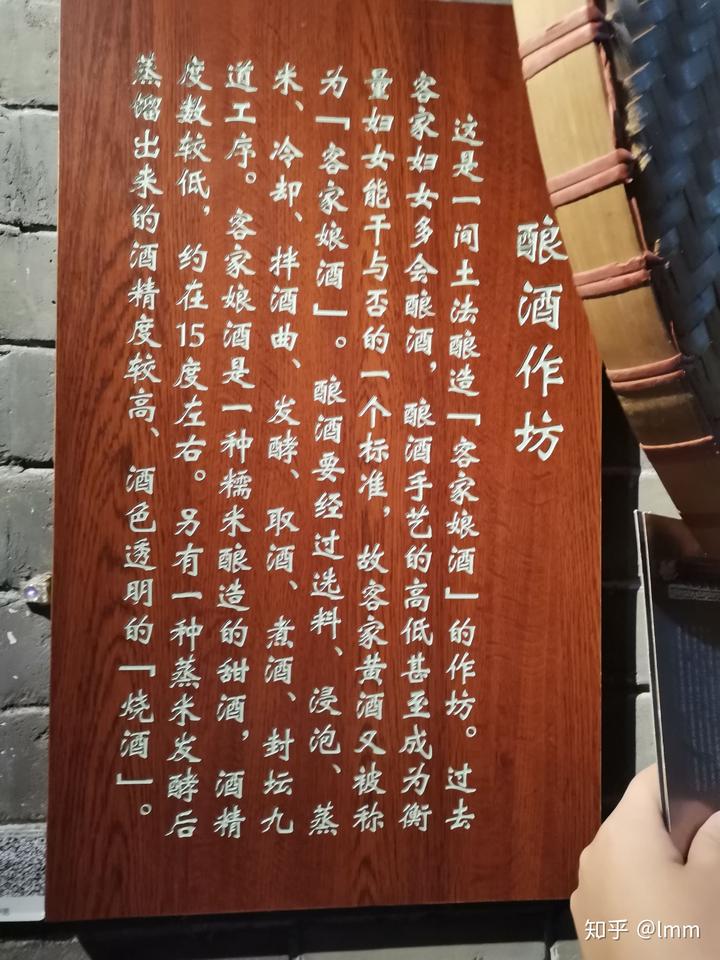 酿酒作坊
这是一间土法酿造「客家娘酒」的作坊。过去
客家妇女多会酿酒，酿酒手艺的高低甚至成为衡
量妇女能干与否的一个标准，故客家黄酒又被称
为「客家娘酒」。酿酒要经过选料、浸泡、蒸
米、冷却、拌酒曲、发酵、取酒、煮酒、封坛九
道工序。客家娘酒是一种糯米酿造的甜酒，酒精
度数较低，约在15度左右。另有一种蒸米发酵后
蒸馏出来的酒精度较高、酒色透明的「烧酒」。
知乎 @lmm